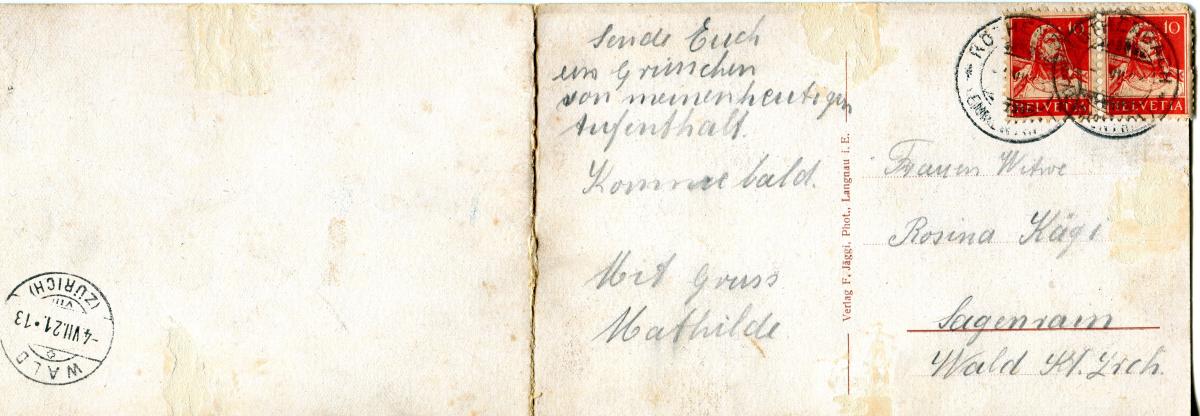 WALD
(ZÜRICH)
-4.VII.21.13
VIII
Sende Euch
ein Grüsschen
von meinen heutigen
Aufenthalt.
Komme bald.
Mit Gruss
Mathilde
Verlag F. Jäggi, Phot., Langnau i. E.
10
10
HELVETIA
HELVETIA
Frauen Witwe
Rosina Kägi
Sagenrain
Wald Kt. Zrch.